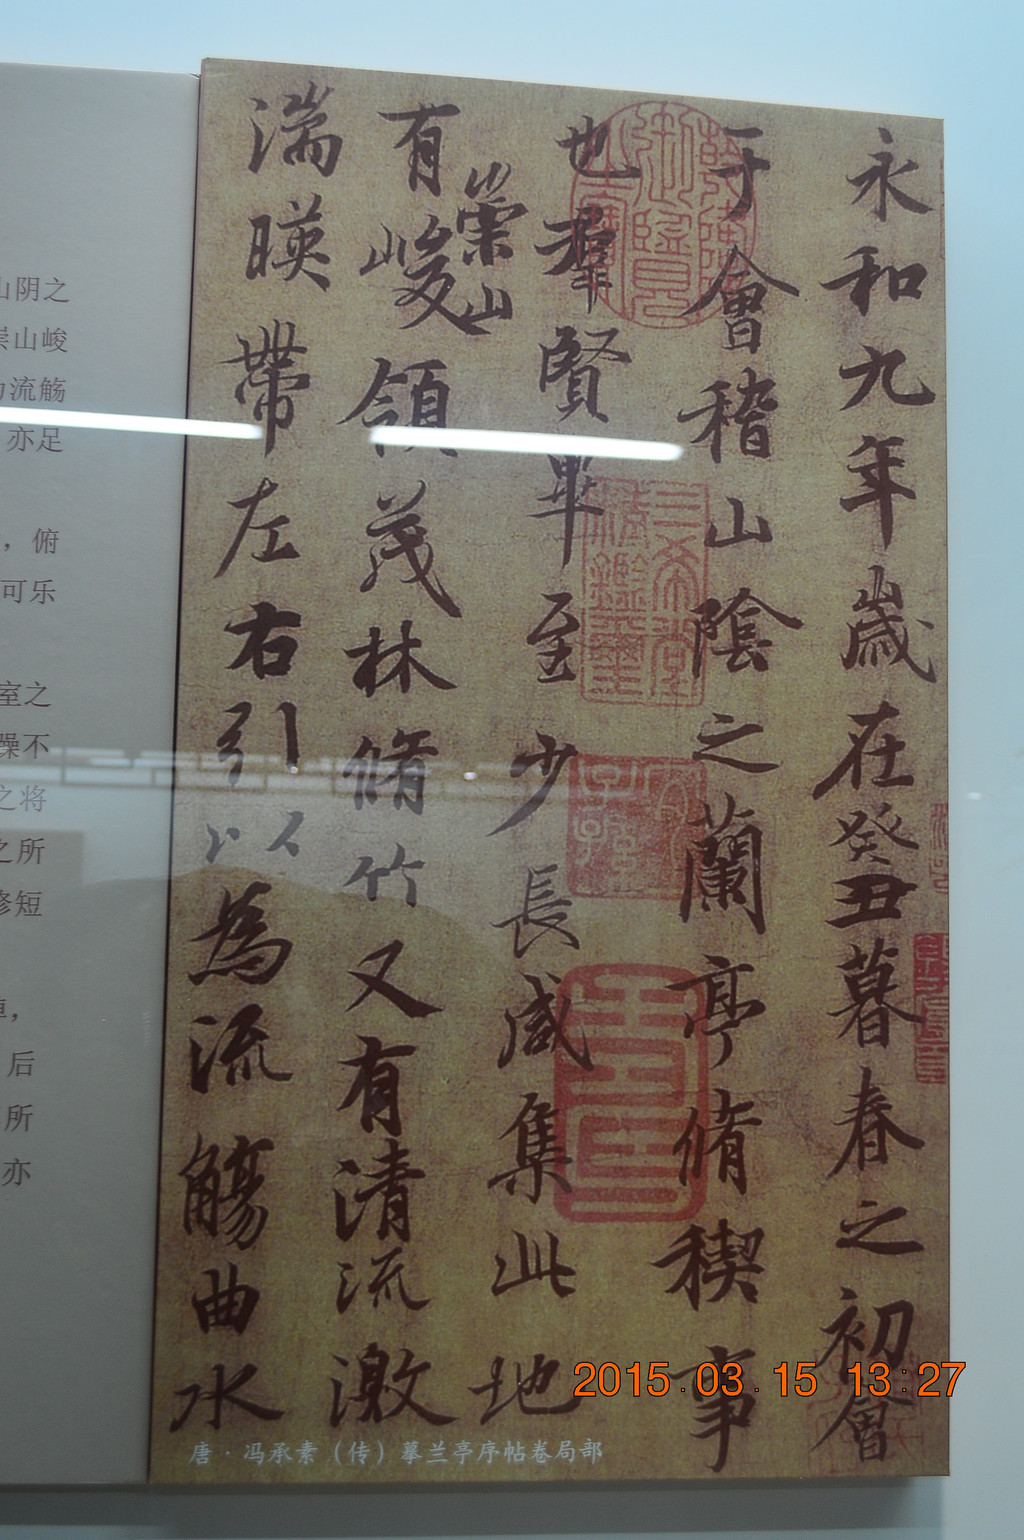 永和九年歲在癸丑暮春之初會
于會稽山陰之蘭亭脩稧事
也羣賢畢至少長咸集此地
有崇山峻領茂林脩竹又有清流激
湍暎帶左右引以為流觴曲水
唐·冯承素（传）摹兰亭序帖卷局部
山阴之
崇山峻
流觞
亦足
，俯
可乐
室之
躁不
之将
之所
修短
后
所
亦
2015.03.15 13:27